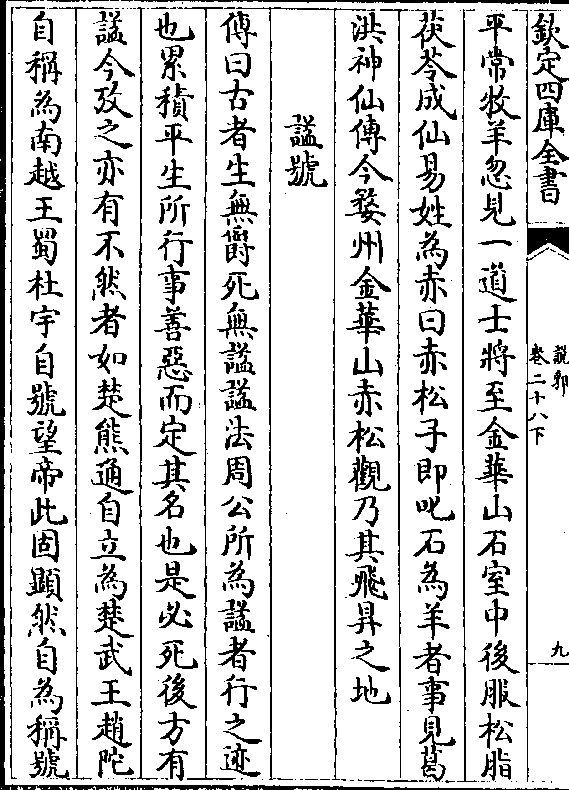 欽定四庫全書
說郛
卷二十八下
九
平常牧羊忽見一道士將至金華山石室中後服松脂
茯苓成仙易姓為赤曰赤松子即叱石為羊者事見葛
洪神仙傳今婺州金華山赤松觀乃其飛昇之地
謚號
傳曰古者生無爵死無謚謚法周公所為謚者行之迹
也累積平生所行事善惡而定其名也是必死後方有
謚今攷之亦有不然者如楚熊通自立為楚武王趙陀
自稱為南越王蜀杜宇自號望帝此固顯然自為稱號